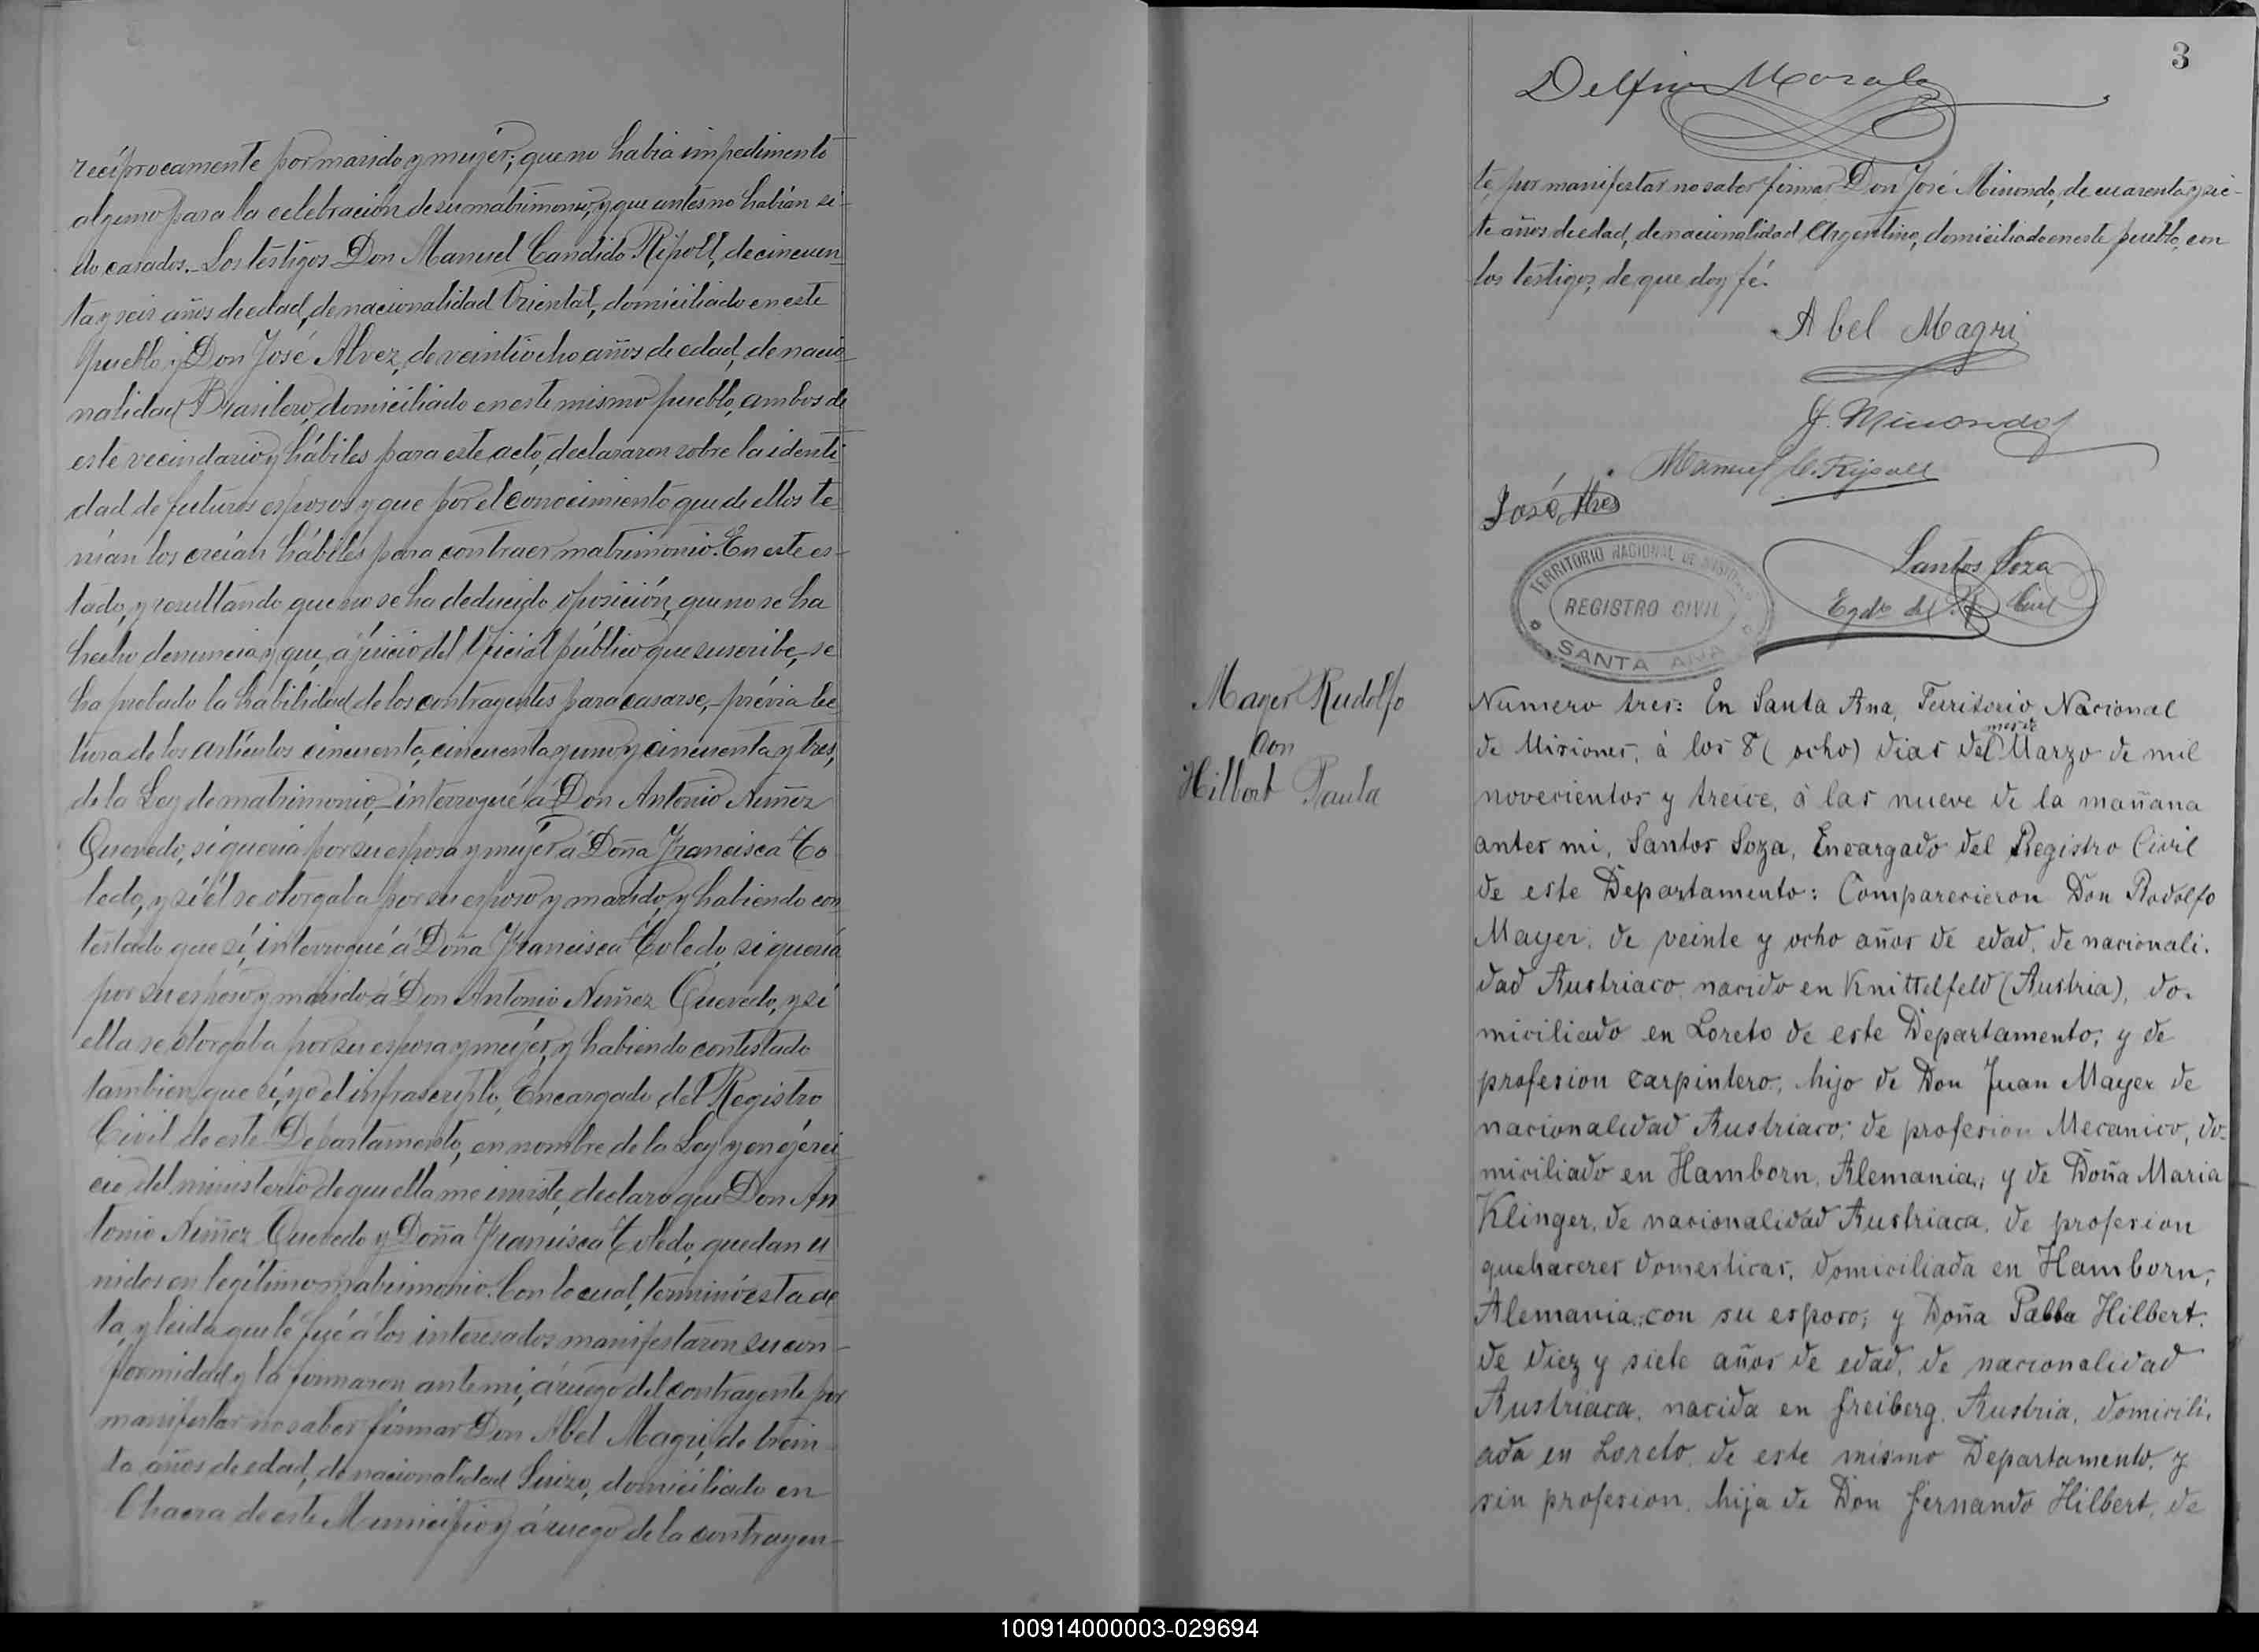 recíprocamente por marido y mujér; que no habia impedimento
alguno para la celebración de su matrimonio, y que antes no habían si-
do casados.- Los testigos Don Manuel Candido Ripoll, de cincuen-
ta y seis años de edad, de nacionalidad Oriental, domiciliado en este
pueblo y Don José Alvez, de veintiocho años de edad, de nacio-
nalidad Brasilero, domiciliado en este mismo pueblo, ambos de
este vecindario y hábiles para este acto, declararon sobre la identi-
dad de futuros esposos y que por el conocimiento que de ellos te-
nían los creían hábiles para contraer matrimonio. En este es-
tado, y resultando que no se ha deducido oposición, que no se ha
hecho denuncia y que, á juicio del Oficial público que suscribe, se
ha probado la habilidad de los contrayentes para casarse,- prévia lec-
tura de los artículos cincuenta, cincuenta y uno y cincuenta y tres,
de la Ley de matrimonio,- interrogué á Don Antonio Nuñez
Quevedo, si queria por su esposa y mujér á Doña Francisca To-
ledo, y si él se otorgaba por su esposo y marido, y habiendo con-
testado que sí, interrogué á Doña Francisca Toledo, si queria
por su esposo y marido á Don Antonio Nuñez Quevedo, y si
ella se otorgaba por su esposa y mujér, y habiendo contestado
tambien que sí, yo el infrascripto, Encargado del Registro
Civil de este Departamento, en nombre de la Ley y en ejérci-
cio del ministerio de que ella me inviste, declaro que Don An-
tonio Nuñez Quevedo y Doña Francisca Toledo, quedan u-
nidos en legítimo matrimonio. Con lo cual, terminó esta ac-
ta, y leida que le fué á los interesados manifestaron su con-
formidad y la firmaron ante mi, á ruego del contrayente por
manifestar no saber firmar Don Abel Magri, de trein-
ta años de edad, de nacionalidad Suizo, domiciliado en
Chacra de este Municipio y á ruego de la contrayen-
3
Delfin Morales
te, por manifestar no saber firmar Don José Minondo, de cuarenta y sie-
te años de edad, de nacionalidad Argentino, domiciliado en este pueblo, con
los testigos, de que doy fé.
Abel Magri
J. Minondo
Manuel C. Ripoll
José Alves
Santos Soza
Egdo del R. Civil
TERRITORIO NACIONAL DE MISIONES
REGISTRO CIVIL
SANTA ANA
Mayer Rudolfo
con
Hilbert Paula
Numero tres: En Santa Ana, Territorio Nacional
mes de
de Misiones, á los 8 (ocho) dias del Marzo de mil
novecientos y treice, á las nueve de la mañana
antes mi, Santos Soza, Encargado del Registro Civil
de este Departamento: Comparecieron Don Rodolfo
Mayer, de veinte y ocho años de edad, de nacionali-
dad Austriaco, nacido en Knittelfeld (Austria), do-
miciliado en Loreto de este Departamento, y de
profesion carpintero, hijo de Don Juan Mayer de
nacionalidad Austriaco, de profesion Mecanico, do-
miciliado en Hamborn, Alemania, y de Doña Maria
Klinger, de nacionalidad Austriaca, de profesion
quehaceres domesticas, domiciliada en Hamborn,
Alemania, con su esposo; y Doña Hilbert,
de diez y siete años de edad, de nacionalidad
Austriaca, nacida en Freiberg, Austria, domicili-
ada en Loreto, de este mismo Departamento, y
sin profesion, hija de Don Fernando Hilbert, de
100914000003-029694